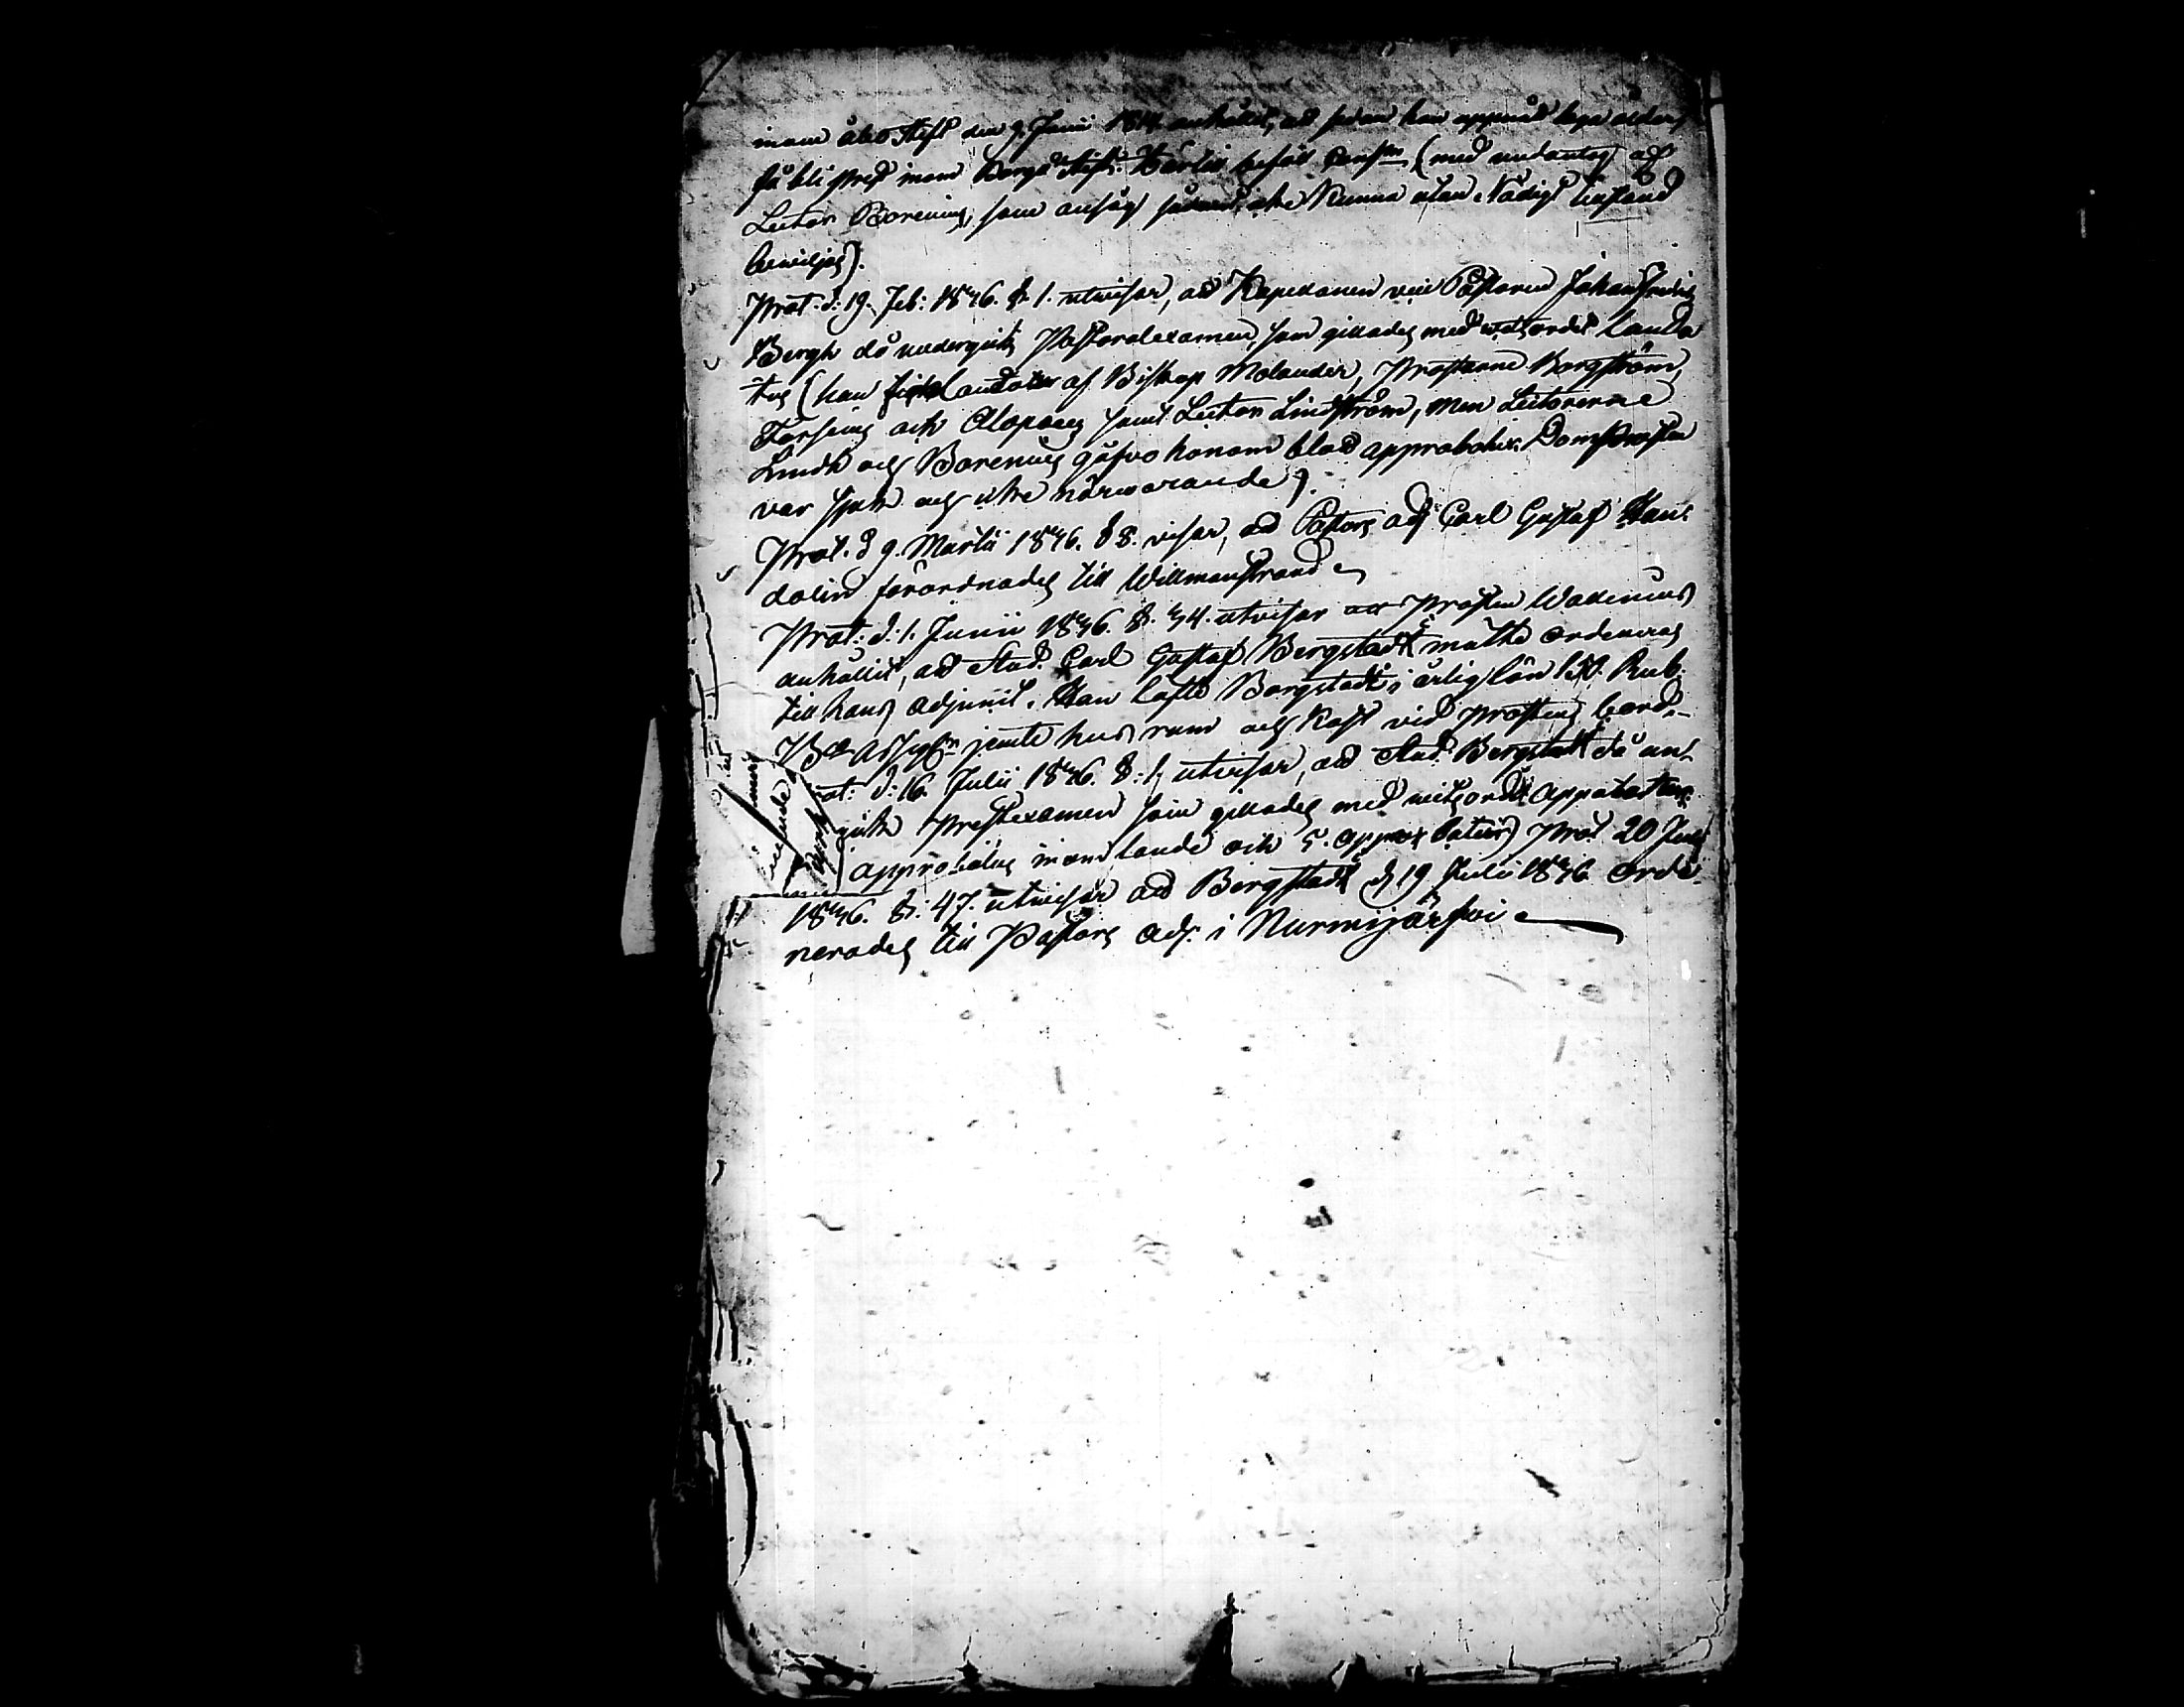 inom Åbo Stift den 9. Junii 1844 anhållit, att sedan han uppnått laga ålder,
få bli prest inom Borgå Stift. Härtill biföll Cons:m (med undantag af
Lector Borenius, som ansåg sådant icke kunna utan Nådigt tillstånd
beviljas).
Prot. d: 19. Feb: 1846. §. 1. utvisar, att Kapellanen vice Pastoren Johan Fredric
Bergh då undergick Pastoralexamen, som gillades med vitsordet lauda
tus (han fick laudatur af Biskop Molander, Prostarne Borgström,
Forsius och Alopaeus samt Lector Lindström, men Lectorerne
Lindh och Borenius gåfvo honom blott approbatur. Domprosten
var sjuk och icke närvarande).
Prot. d 9. Martii 1846. § 8. visar, att Pastors adj. Carl Gustaf
dolin förordnades till Willmanstrand
Prot: d: 1. Junii 1846. §. 44. utvisar att Prosten Wallenius
anhållit, att Stud. Carl Gustaf Bergstadt måtte ordineras
till hans adjunct. Han lofte Bergstadt i årlig lön 150. Rub.
B:co Ass:gn jemte husrum och kost vid Prostens bord.
Prot: d: 16. Julii 1846. §: 1. utvisar, att Stud. Bergstadt då un-
gick Prestexamen som gillades med vitsordet
approbatus inom laude och 5. Prot 20 Julii
1846. §: 47. utvisar att Bergstadt d 19 Julii 1846 ordi-
nerades till Pastors adj. i Nurmijärfvi